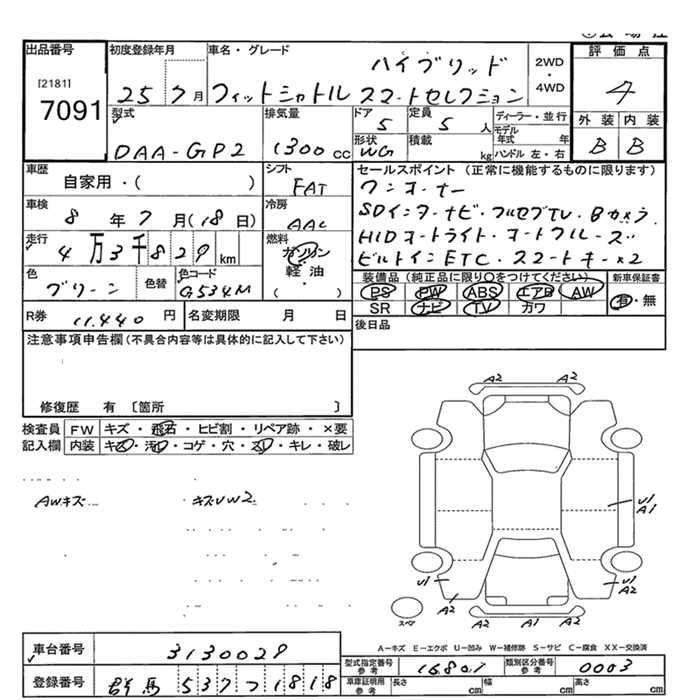 出品番号
[2181]
7091
初度登録年月
25 7月
車名・グレード
ハイブリッド
フィットシャトル スマートセレクション
2WD
・
4WD
評価点
4
外装 内装
B B
型式
DAA-GP2
排気量
1300cc
ドア
5
定員
5人
ディーラー・並行
モデル年式 年
ハンドル 左・右
形状
WG
積載
kg
車歴
自家用・( )
シフト
FAT
車検
8年7月(18日)
冷房
AAC
走行
4万3千829km
燃料
ガソリン
軽油・
( )
色
グリーン
色替
色コード
G534M
R券
11,440円
名変期限 月 日
セールスポイント (正常に機能するものに限ります)
ワンオーナー
SDインターナビ・フルセグTV・Bカメラ
HIDオートライト・オートクルーズ
ビルトインETC・スマートキー×2
装備品 (純正品に限り○をつけてください)
PS PW ABS エアB AW
SR ナビ TV カワ
新車保証書
有・無
後日品
注意事項申告欄(不具合内容等は具体的に記入して下さい)
修復歴 有 〔箇所 〕
検査員
記入欄
FW キズ・飛石・ヒビ割・リペア跡・×要
内装 キズ・汚れ・コゲ・穴・スレ・キレ・破レ
AWキズ
キズUW2
A2 A2
U1
A1
U1
A2
U1
A2
A2 A1
スペア
A-キズ E-エクボ U-凹み W-補修跡 S-サビ C-腐食 XX-交換済
車台番号
3130029
登録番号
群馬 537つ1818
型式指定番号
参考
16801
類別区分番号
参考
0003
車庫証明用
参考
長さ cm
幅 cm
高さ cm